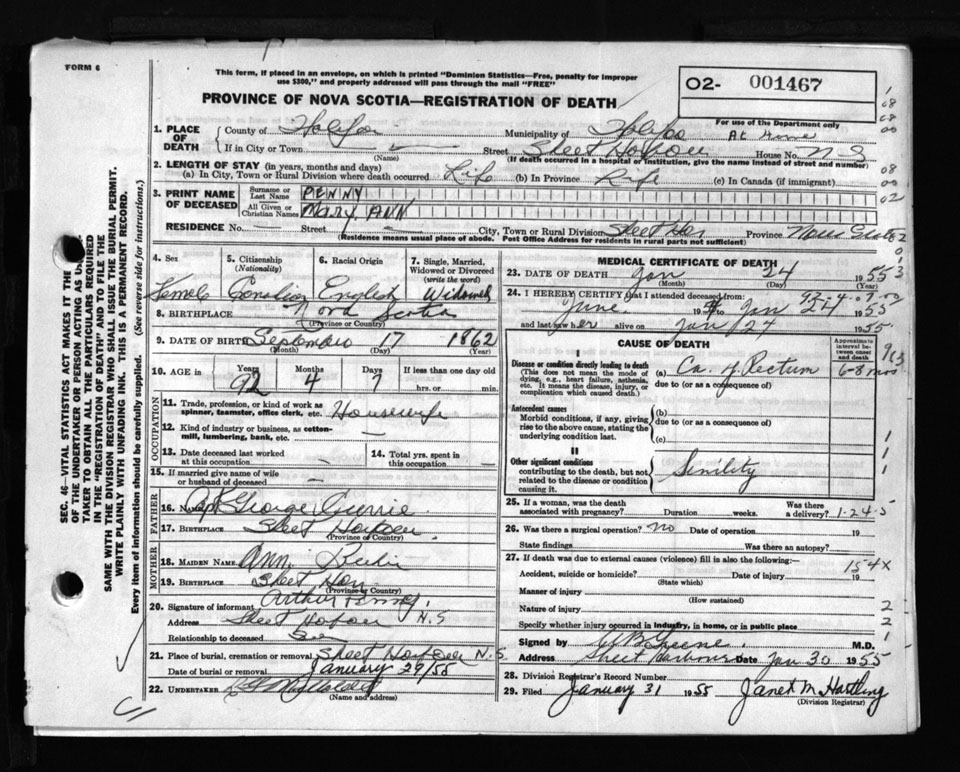 FORM 6
This form, if placed in an envelope, on which is printed "Dominion Statistics—Free, penalty for improper
use $300," and properly addressed will pass through the mail "FREE"
02- 001467
PROVINCE OF NOVA SCOTIA—REGISTRATION OF DEATH
For use of the Department only
1. PLACE OF DEATH
County of Halifax Municipality of Halifax At Home
If in City or Town — Street Sheet Harbour House No. N S
(Name) (If death occurred in a hospital or institution, give the name instead of street and number)
2. LENGTH OF STAY (in years, months and days)
(a) In City, Town or Rural Division where death occurred Life (b) In Province Life (c) In Canada (if immigrant)
3. PRINT NAME OF DECEASED
Surname or Last Name PENNY
All Given or Christian Names MARY ANN
RESIDENCE No. — Street — City, Town or Rural Division Sheet Hbr Province Nova Scotia
(Residence means usual place of abode. Post Office Address for residents in rural parts not sufficient)
4. Sex 5. Citizenship (Nationality) 6. Racial Origin 7. Single, Married, Widowed or Divorced (write the word)
Female Canadian English Widowed
8. BIRTHPLACE Nova Scotia
(Province or Country)
9. DATE OF BIRTH September 17 1862
(Month) (Day) (Year)
10. AGE in Years Months Days If less than one day
92 4 7 hrs. or min.
OCCUPATION
11. Trade, profession, or kind of work as
spinner, teamster, office clerk, etc. Housewife
12. Kind of industry or business, as cotten-
mill, lumbering, bank, etc. —
13. Date deceased last worked
at this occupation —
14. Total yrs. spent in
this occupation —
15. If married give name of wife
or husband of deceased —
FATHER
16. Name George Currie
17. BIRTHPLACE Sheet Harbour
(Province or Country)
MOTHER
18. MAIDEN NAME Ann
19. BIRTHPLACE Sheet Hbr
(Province or Country)
20. Signature of informant Arthur Penny
Address Sheet Harbour N.S
Relationship to deceased Son
21. Place of burial, cremation or removal Sheet Harbour N.S
Date of burial or removal January 29/55
22. UNDERTAKER
(Name and address)
MEDICAL CERTIFICATE OF DEATH
23. DATE OF DEATH Jan 24 1955
(Month) (Day)
24. I HEREBY CERTIFY that I attended deceased from:
June 19 Jan 24 1955
and last saw her alive on Jan 24 1955
CAUSE OF DEATH
Approximate interval between onset and death
I
Disease or condition directly leading to death
(This does not mean the mode of
dying, e.g., heart failure, asthenia,
etc. It means the disease, injury, or
complication which caused death.)
(a) Ca. of Rectum 6-8 mos
due to (or as a consequence of)
Antecedent causes
Morbid conditions, if any, giving
rise to the above cause, stating the
underlying condition last.
(b)
due to (or as a consequence of)
(c)
II
Other significant conditions
contributing to the death, but not
related to the disease or condition
causing it.
Senility
25. If a woman, was the death
associated with pregnancy? Duration weeks. Was there a delivery? 1-24-5
26. Was there a surgical operation? No Date of operation 19
State findings Was there an autopsy?
27. If death was due to external causes (violence) fill in the following:
154X
Accident, suicide or homicide? Date of injury 19
(State which)
Manner of injury
(How sustained)
Nature of injury
Specify whether injury occurred in industry, in home, or in public place
Signed by Greene M.D.
Address Sheet Harbour Date Jan 30 1955
28. Division Registrar's Record Number
29. Filed January 31 1955 Janet M. Hartling
(Division Registrar)
SEC. 46—VITAL STATISTICS ACT MAKES IT THE
OF THE UNDERTAKER OR PERSON ACTING AS
TAKER TO OBTAIN ALL THE PARTICULARS REQUIRED
IN THE "REGISTRATION OF DEATH" AND TO FILE THE
SAME WITH THE DIVISION REGISTRAR WHO SHALL ISSUE THE BURIAL PERMIT.
WRITE PLAINLY WITH UNFADING INK. THIS IS A PERMANENT RECORD.
Every item of information should be carefully supplied. (See reverse side for instructions.)